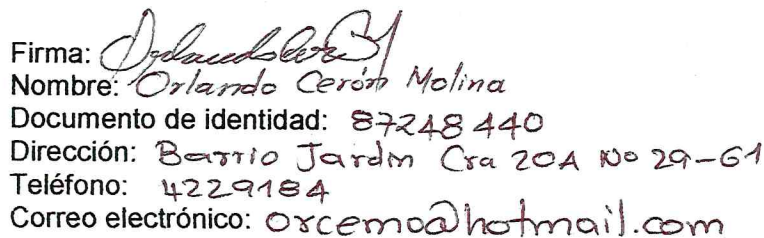 Firma:
Nombre: Orlando Cerón Molina
Documento de identidad: 87248440
Dirección: Barrio Jardin Cra 20A No 29-61
Teléfono: 4229184
Correo electrónico: orcemo@hotmail.com